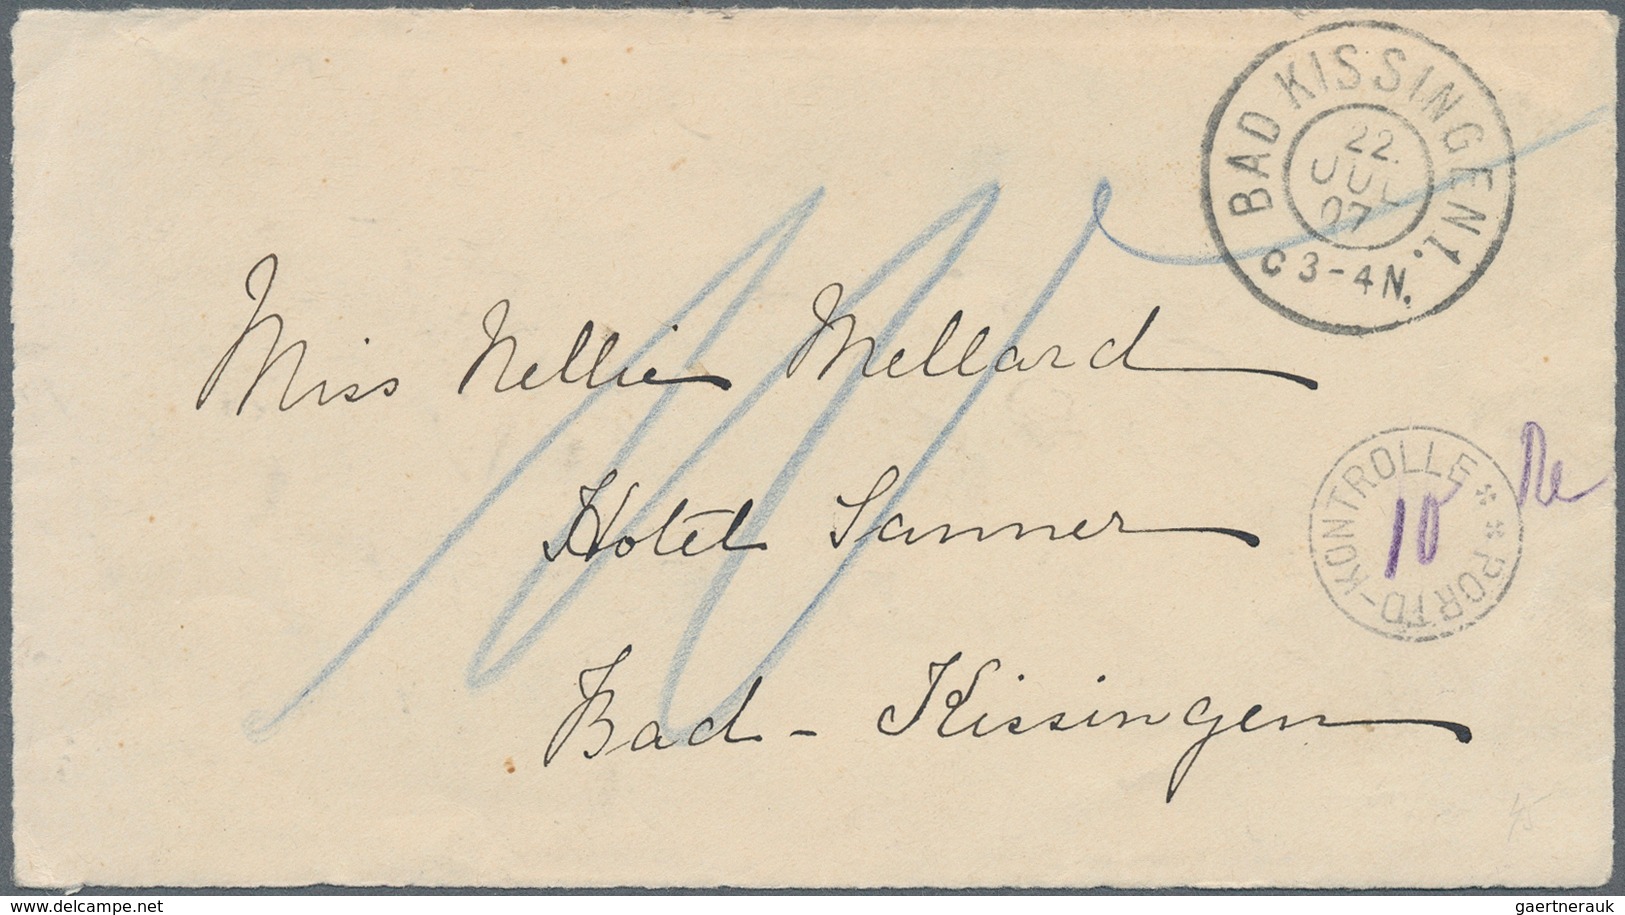 BAD KISSINGEN 1.
22.
JUL
07
C 3-4 N.
Miss Nellie Mellard
Hotel Sanner
Bad-Kissingen
PORTO-KONTROLLE **
10
www.delcampe.net
gaertnerauk